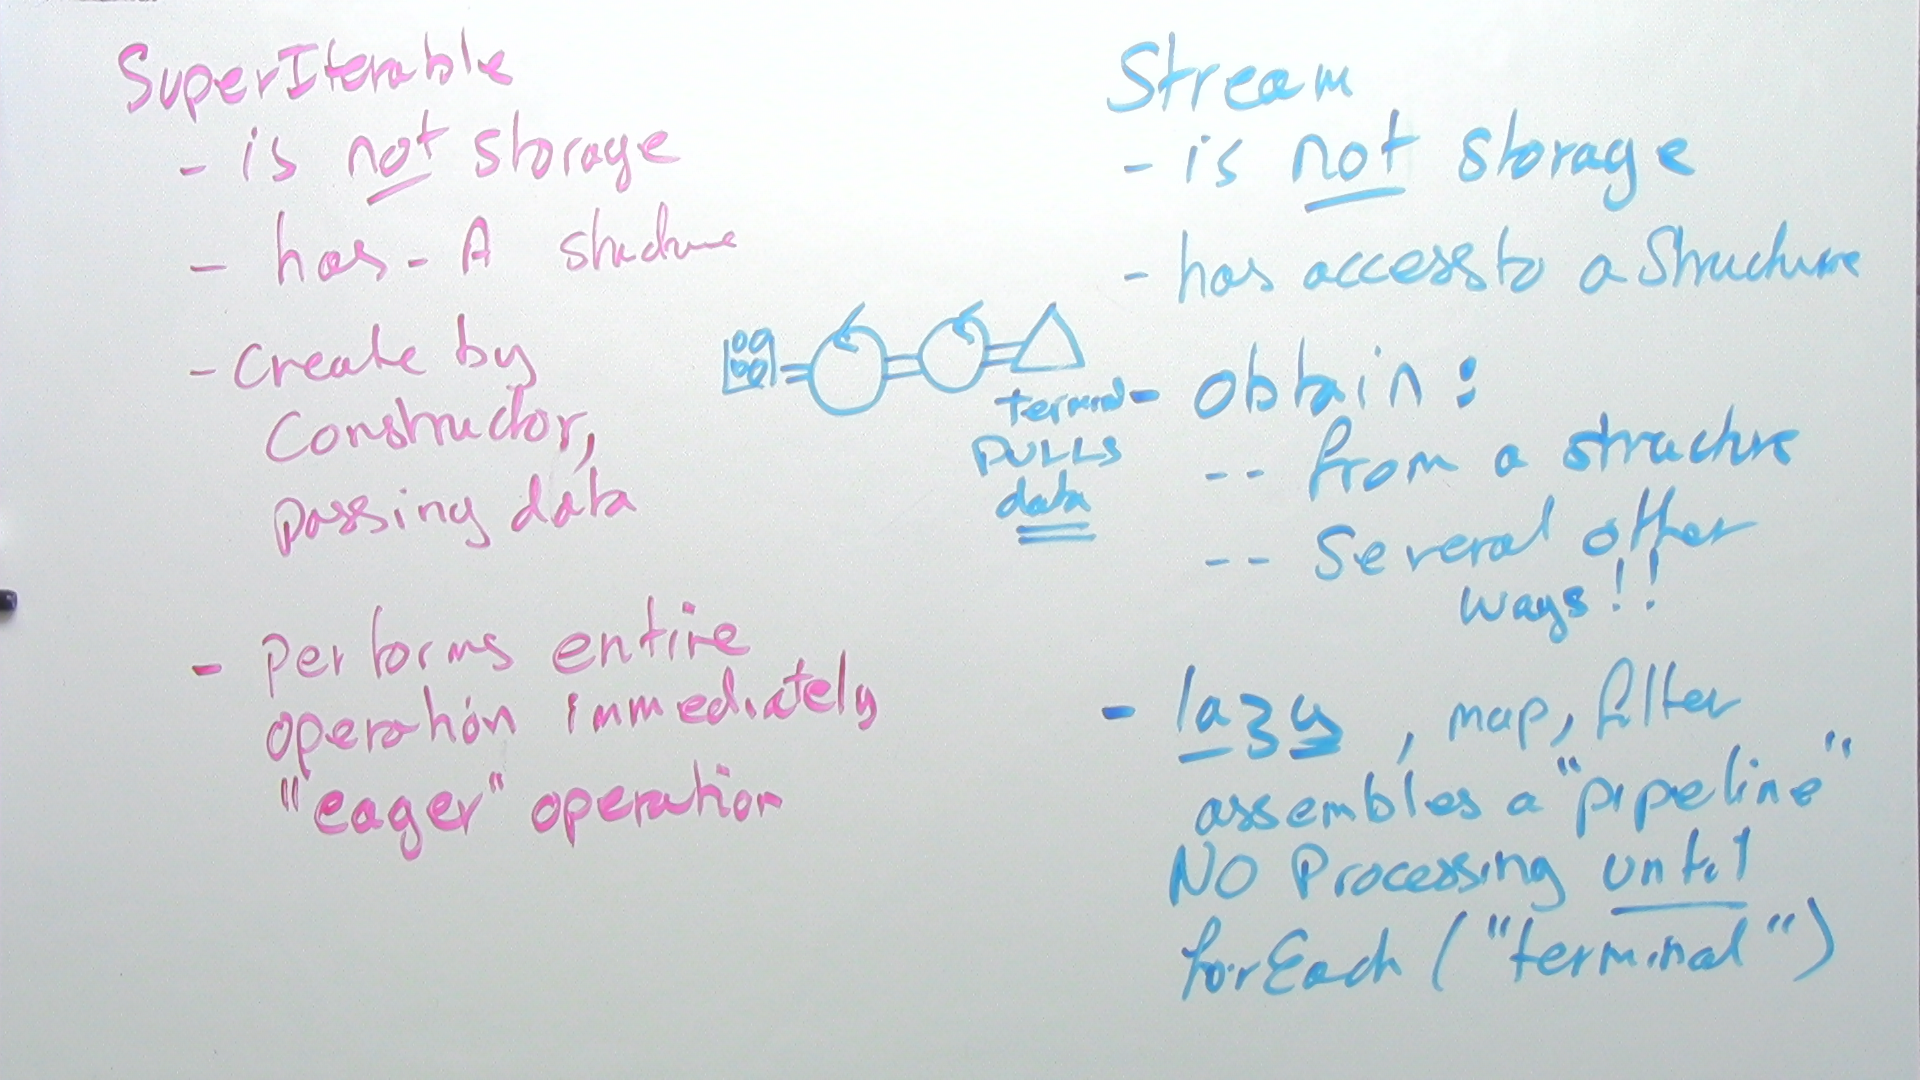 SuperIterable
- is not storage
- has-A structure
- Create by
Constructor,
passing data
- Performs entire
operation immediately
"eager" operation
terminal
PULLS
data
Stream
- is not storage
- has access to a Structure
- obtain:
-- from a structure
-- Several other
ways!!
- lazy, map, filter
assembles a "pipeline"
NO Processing until
forEach ("terminal")